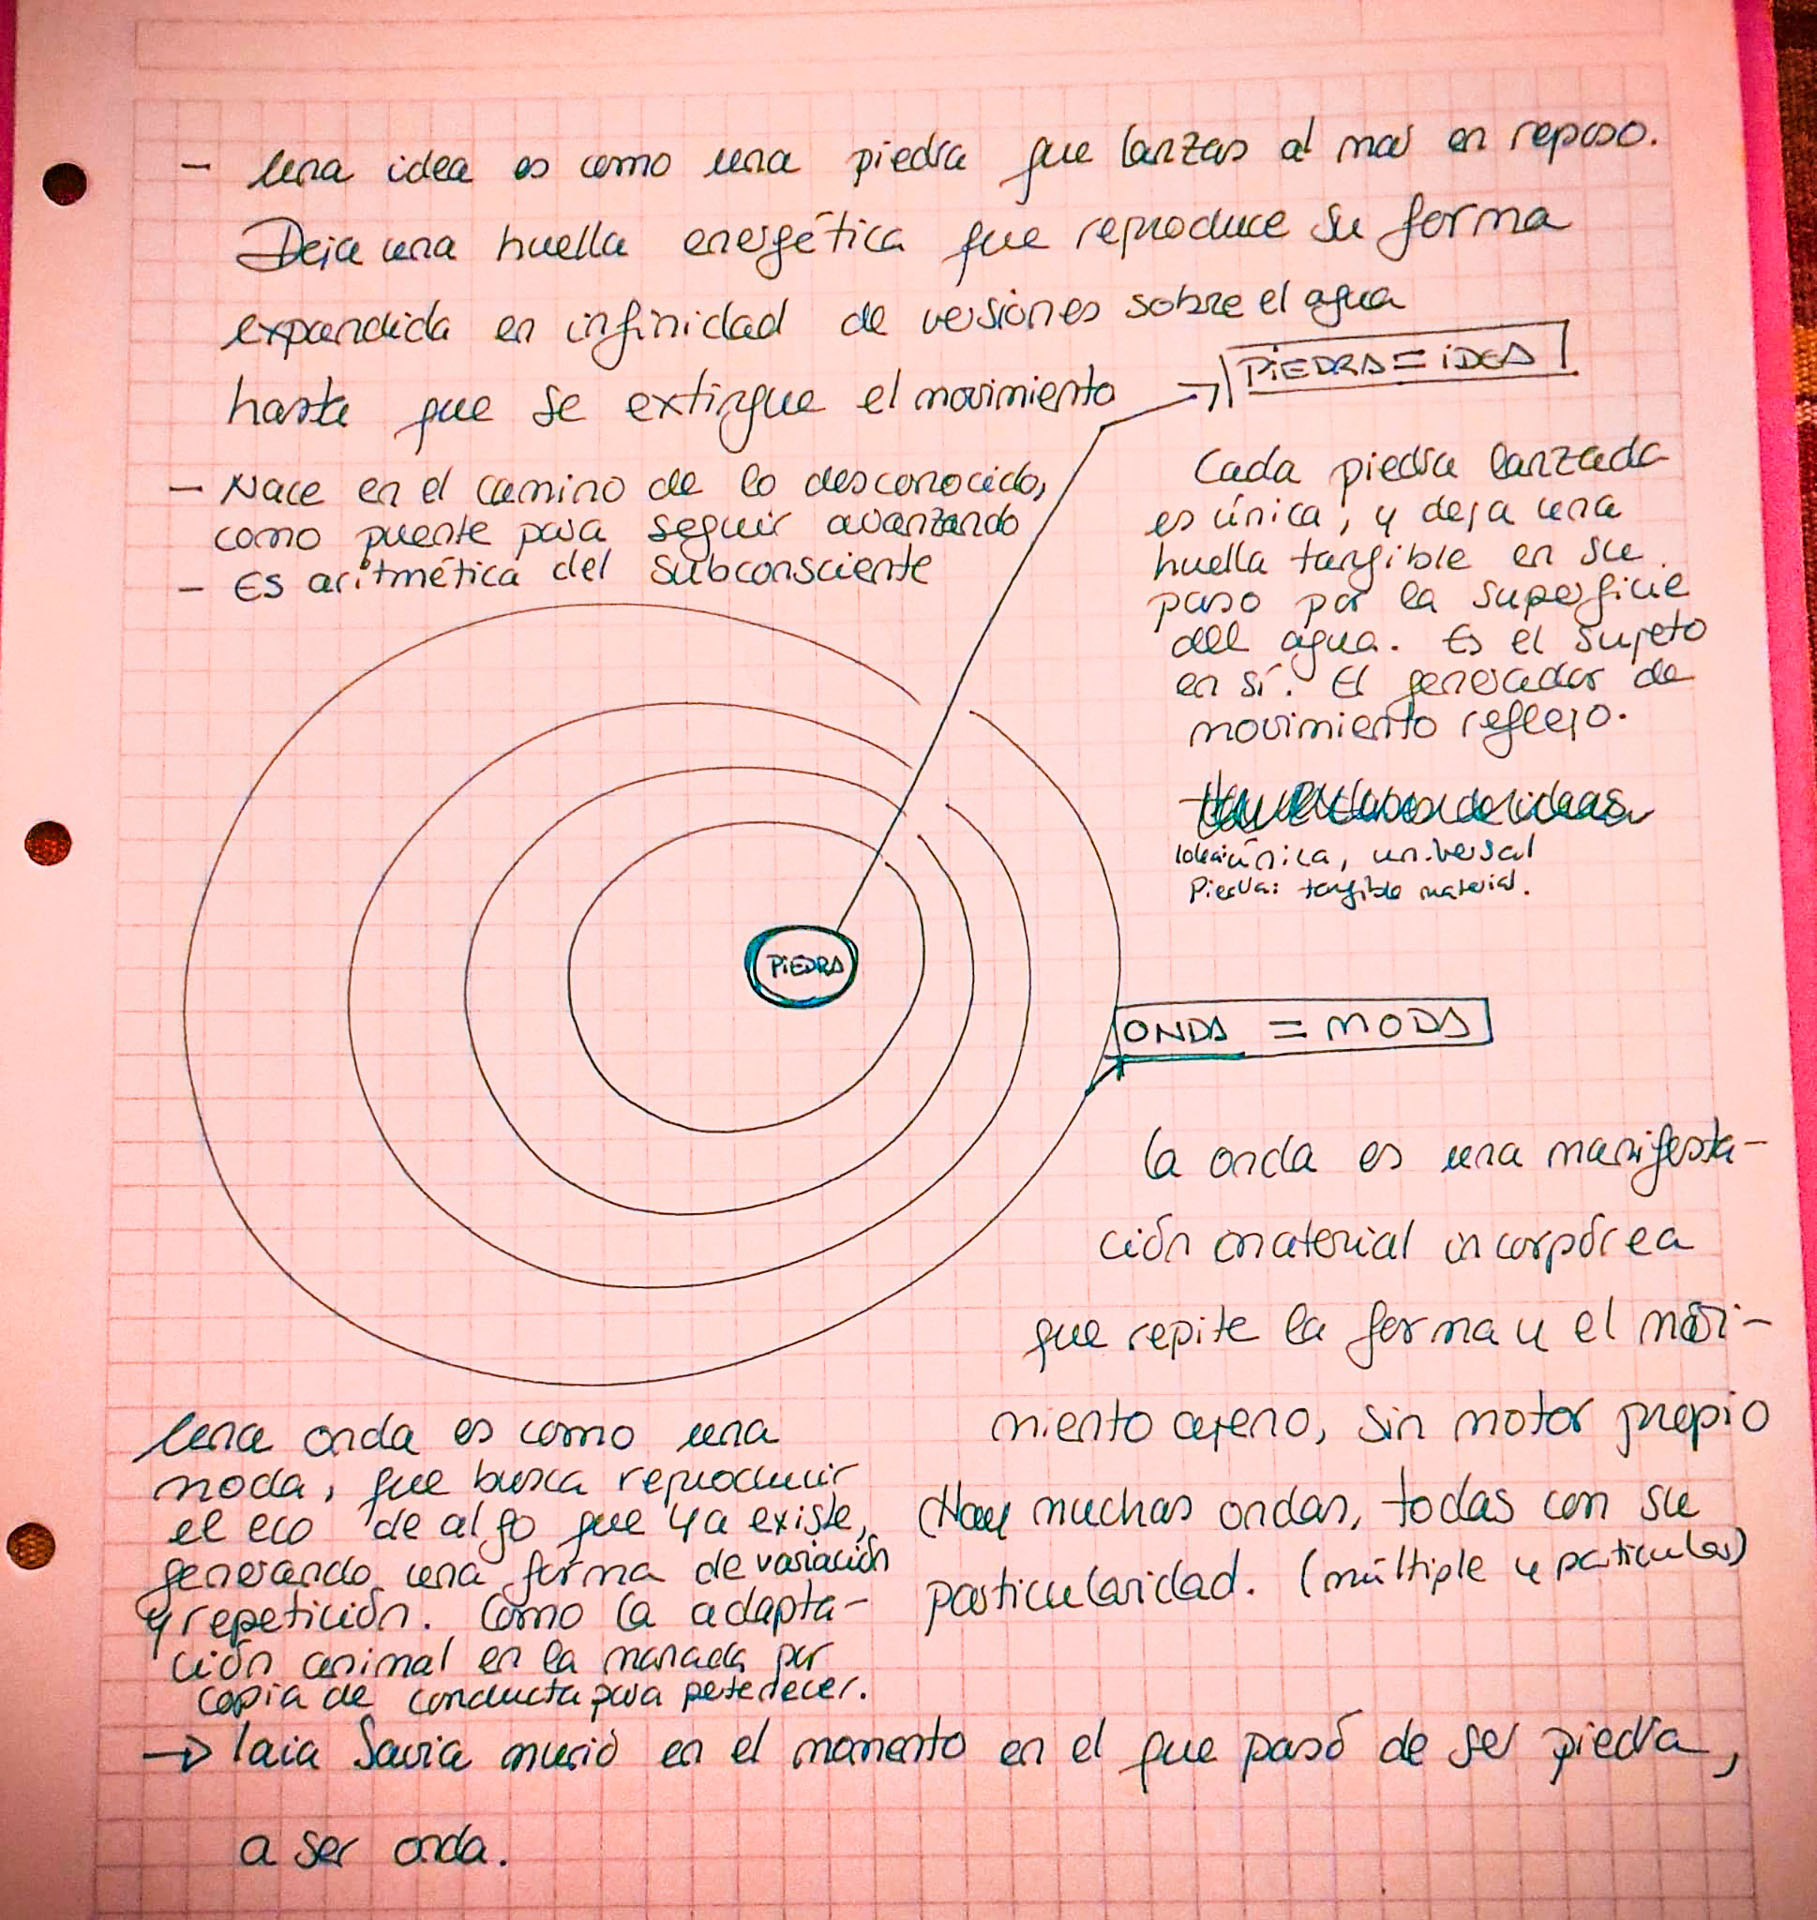 - Una idea es como una piedra que lanzas al mar en reposo.
Deja una huella energética que reproduce su forma
expandida en infinidad de versiones sobre el agua
hasta que se extingue el movimiento
PIEDRA = IDEA
- Nace en el camino de lo desconocido,
como puente para seguir avanzando
- Es aritmética del subconsciente
Cada piedra lanzada
es única, y deja una
huella tangible en su
paso por la superficie
del agua. Es el sujeto
en sí. El generador de
movimiento reflejo.
Idea: única, universal
Piedra: tangible material.
PIEDRA
ONDA = MODA
la onda es una manifesta-
ción material incorpórea
que repite la forma y el movi-
miento ajeno, sin motor propio
(Hay muchas ondas, todas con su
particularidad. (múltiple y particular)
Una onda es como una
moda, que busca reproducir
el eco de algo que ya existe,
generando una forma de variación
y repetición. Como la adapta-
ción animal en la manada por
copia de conducta para pertenecer.
→ laia Savia murió en el momento en el que pasó de ser piedra,
a ser onda.